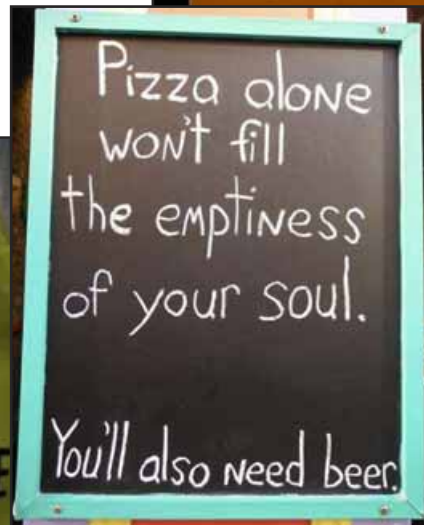 Pizza alone
won't fill
the emptiness
of your soul.
You'll also need beer.